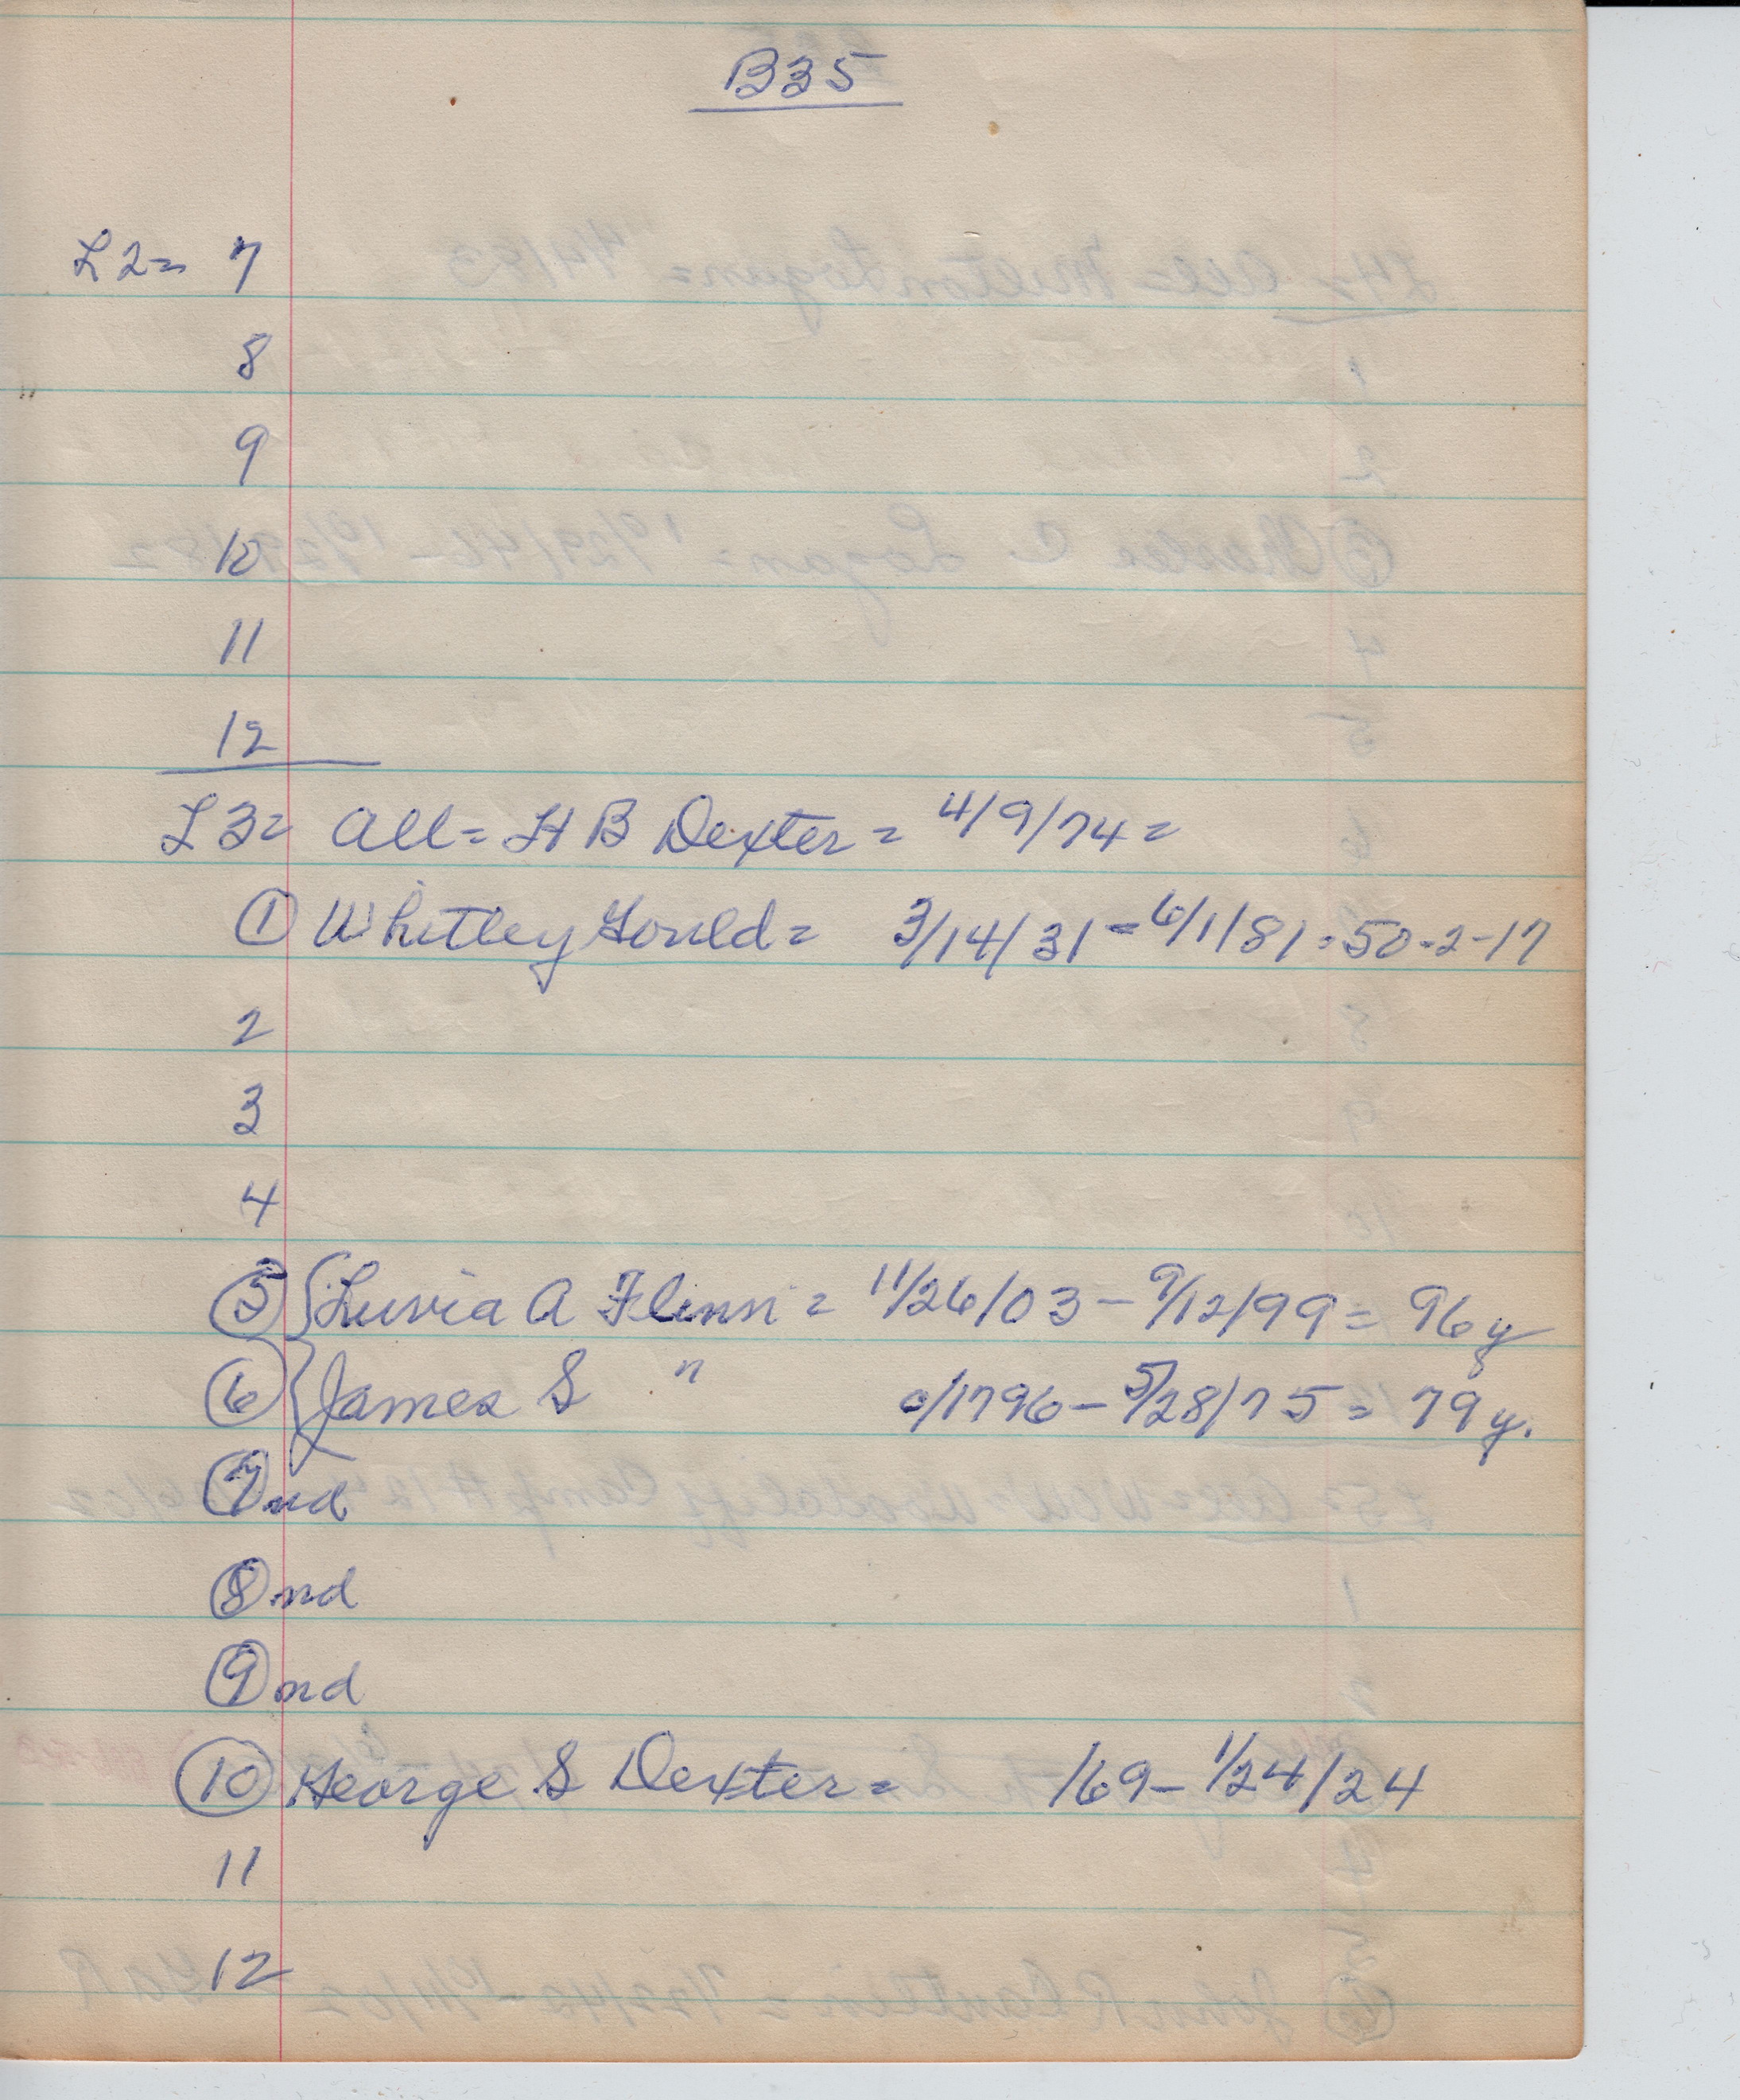 B35
L2= 7
8
9
10
11
12
L3= All= H B Dexter = 4/9/74=
① Whitley Gould= 3/14/31=6/1/81=50-2-17
2
3
4
⑤ {Luvia A Flinn = 11/26/03-9/12/99= 96y
⑥ {James S " 0/1796-5/28/75= 79y.
⑦ nd
⑧ nd
⑨ nd
⑩ George S Dexter= /69-1/24/24
11
12